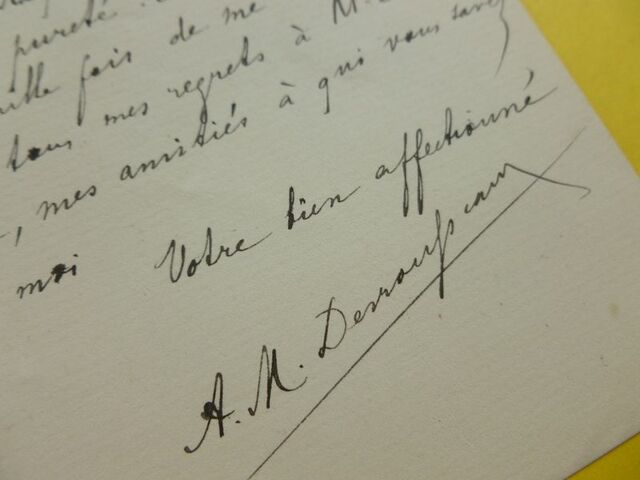 pureté.
mille fois de me
tous mes regrets à M.
, mes amitiés à qui vous savez
moi Votre bien affectionné
A. M. Desrousseaux